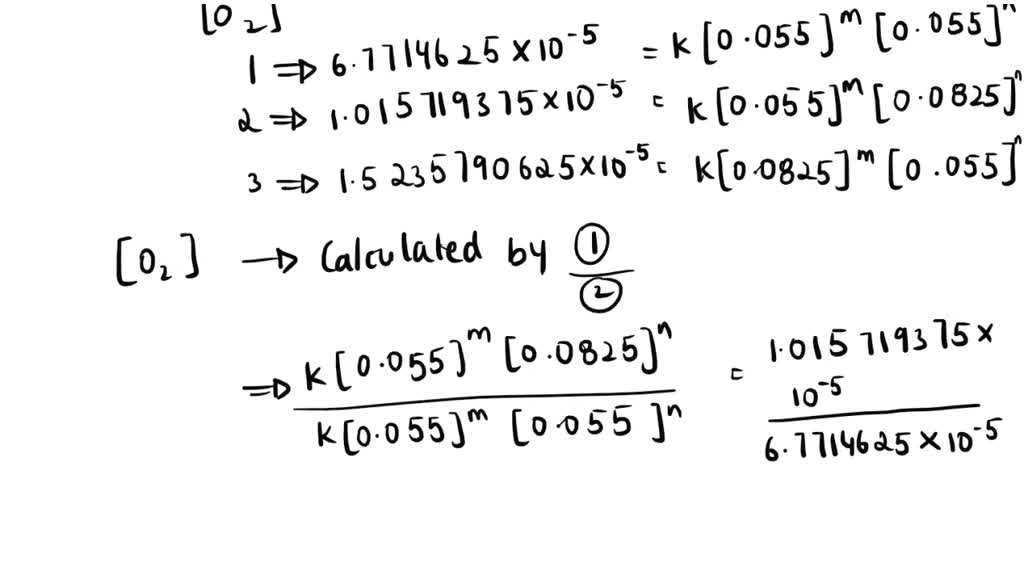 [O2]
1 ⇒ 6.7714625 × 10^-5 = k[0.055]^m [0.055]^n
2 ⇒ 1.015719375 × 10^-5 = k[0.055]^m [0.0825]^n
3 ⇒ 1.5235790625 × 10^-5 = k[0.0825]^m [0.055]^n
[O2] → Calculated by ①/②
⇒ k[0.055]^m [0.0825]^n / k[0.055]^m [0.055]^n = 1.015719375 × 10^-5 / 6.7714625 × 10^-5